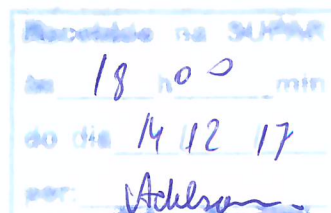 Recebido na SUPAR
às 18 h 00 min
do dia 14 12 17
por: Adelson.